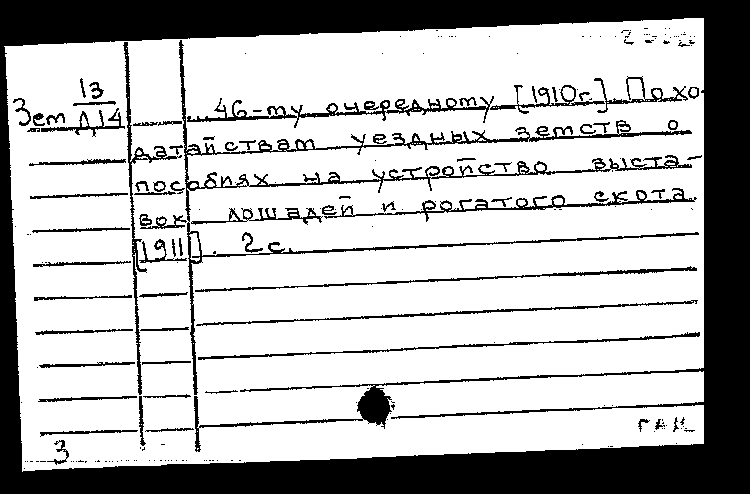 Зем 13
Д14
...46-му очередному [1910г.] Похо-
датайствам уездных земств о
пособиях на устройство выста-
вок лошадей и рогатого скота
[1911]. 2с.
3